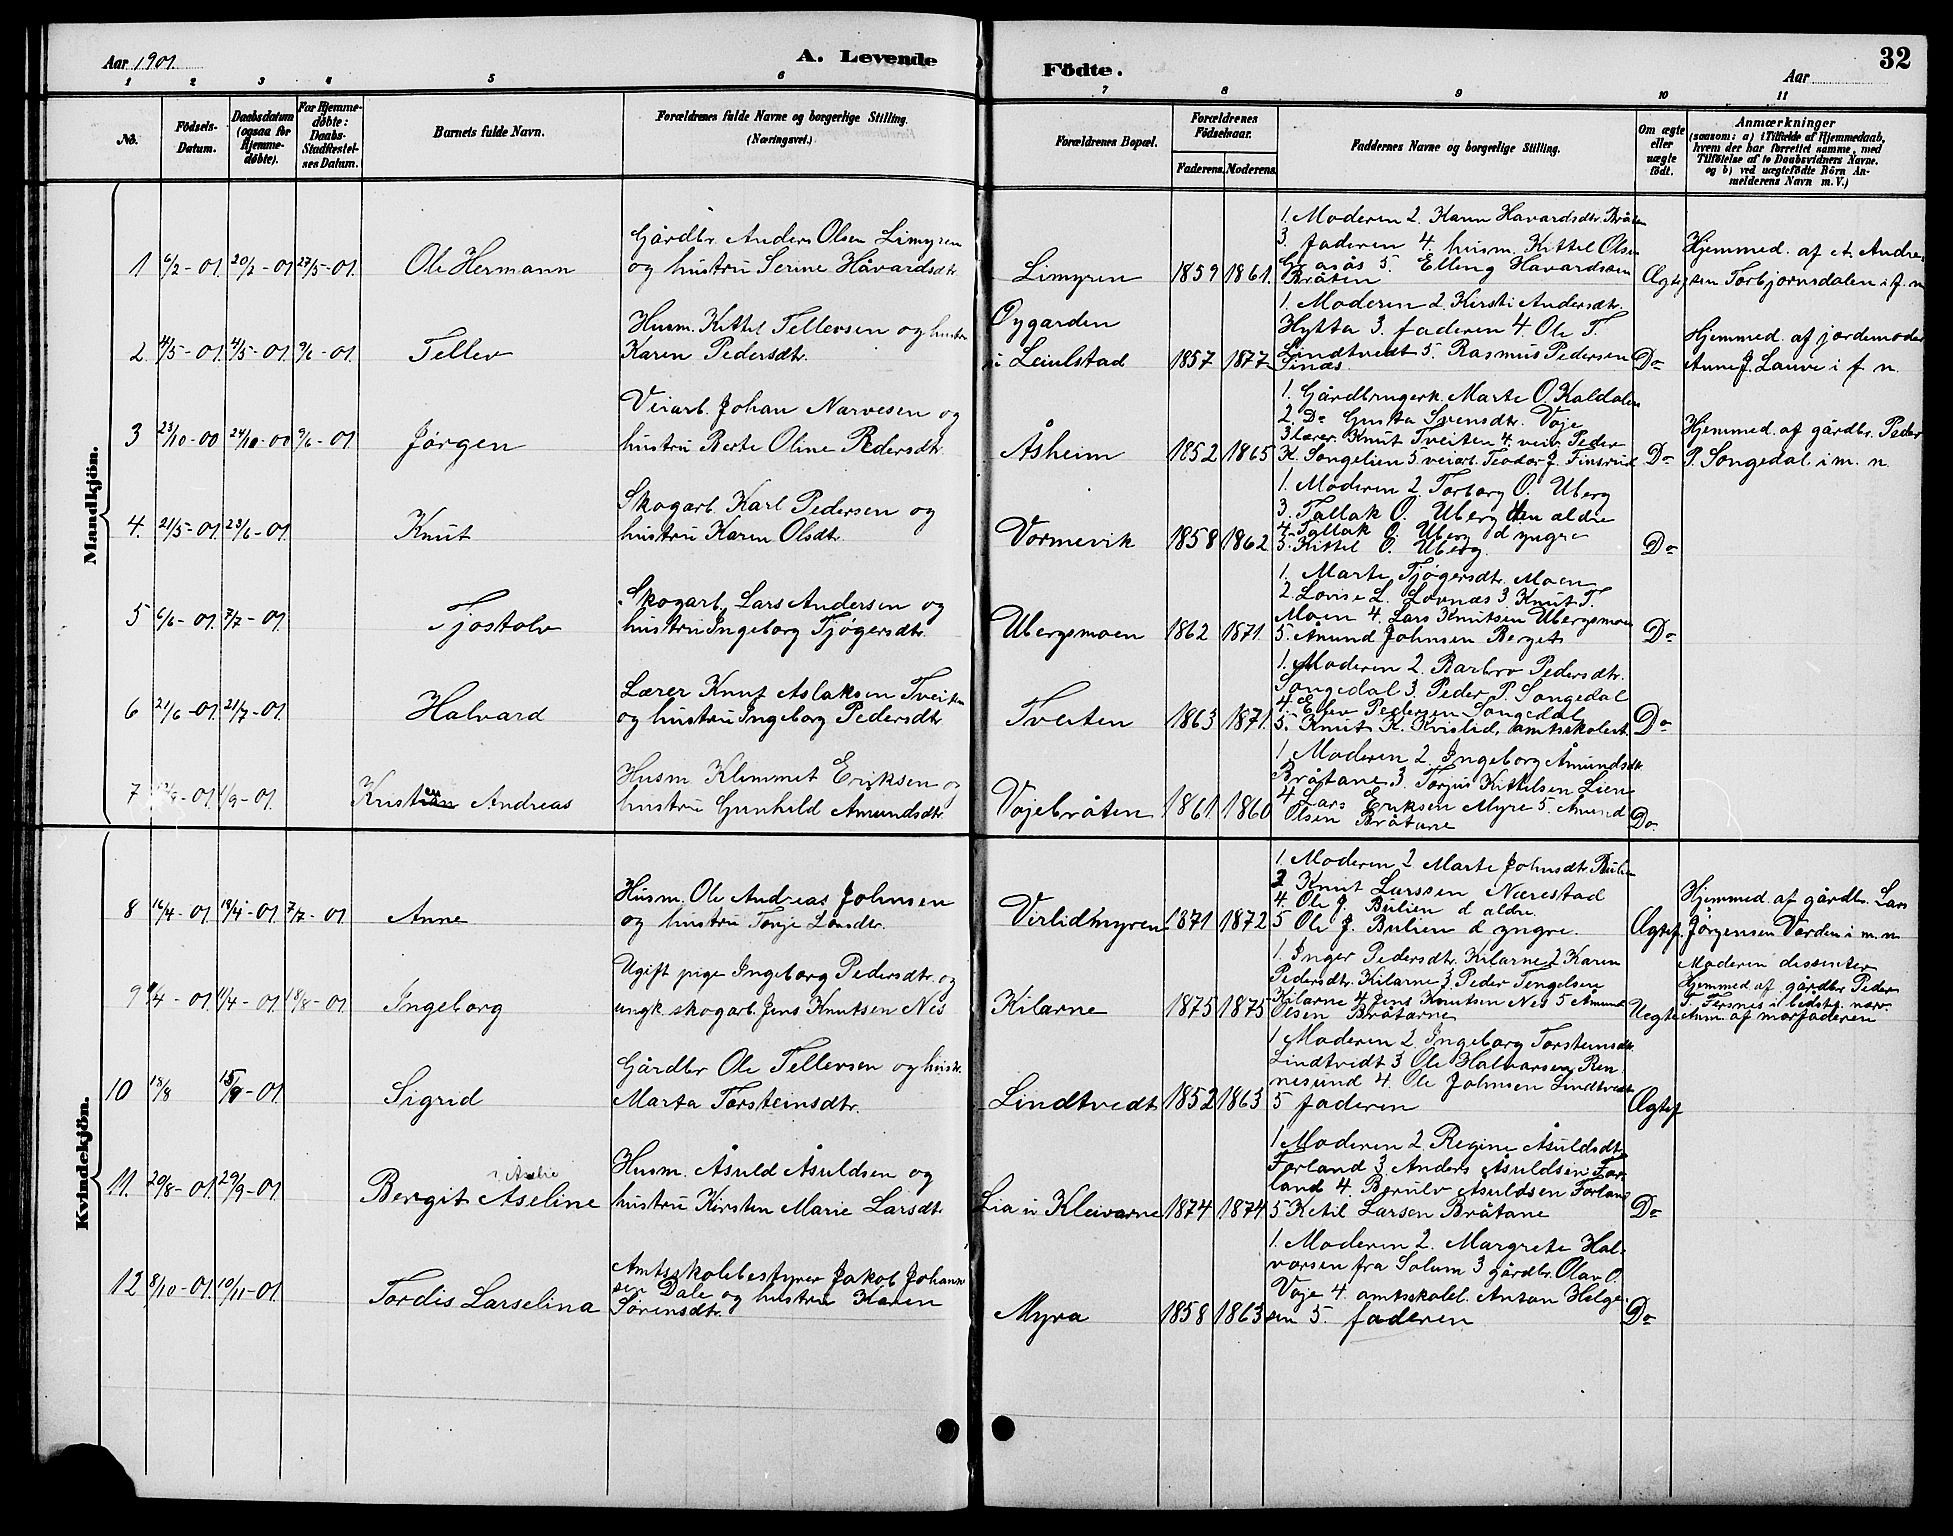 Aar 1901.
A. Levende
Födte.
Aar
32
1 2 3 4 5 6 7 8 9 10 11
No.
Födsels-Datum.
Daabsdatum (ogsaa for Hjemme-döbte).
For Hjemme-döbte: Daabs-Stadfæstel-ses Datum.
Barnets fulde Navn.
Forældrenes fulde Navne og borgerlige Stilling.
(Næringsvei.)
Forældrenes Bopæl.
Forældrenes Födselsaar.
Faderens. Moderens.
Faddernes Navne og borgerlige Stilling.
Om ægte eller uægte födt.
Anmærkninger
(saasom: a) i Tilfælde af Hjemmedaab,
hvem der har forrettet samme, med
Tilföielse af to Daabsvidners Navne.
og b) ved uægtefödte Börn An-
melderens Navn m. V.)
Mandkjön.
1 6/2-01. 20/2-01 27/5-01. Ole Hermann
Gårdbr. Anders Olsen Limyren
og hustru Serine Håvardsdtr.
Limyren 1859 1861.
1. Moderen 2. Karen Havardsdtr. Bråten
3. faderen 4. husm. Kittel Olsen
5. Elling Havardsen
Bråten
Ægtef
Hjemmed. af et. Andre
sen Torbjørnsdalen i f. n
2. 4/5-01. 4/5-01. 9/6-01 Tellev
Husm. Kittel Tellevsen og hustru
Karen Pedersdtr.
Øygarden
u. Leiulstad 1857 1877
1. Moderen 2. Kirsti Andersdtr.
Hytta 3. faderen 4. Ole T.
Lindtvedt 5. Rasmus Pedersen
Sinds.
Do
Hjemmed. af jordemoder
Anne J. Lauve i f. n.
3 23/10-00 24/10-00 9/6-01 Jørgen
Veiarb. Johan Narvesen og
hustru Berte Oline Pedersdtr.
Åsheim 1852 1865
1. Gårdbrugerk. Marte O. Kaldalen
2. Do Gusta Svensdtr. Voje
3 lærer Knut Tveiten 4. veiv. Peder
K. Songelien 5 veiarb. Teodor J. Finsrud
Do
Hjemmed. af gårdbr. Peder
P. Songedal i m. n.
4. 21/5-01 23/6-01 Knut
Skogarb. Karl Pedersen og
hustru Karen Olsdtr.
Vormevik 1858 1862
1. Moderen 2. Torborg O. Uberg
3. Tallak O. Uberg den ældre
4. Tallak O. Uberg d yngre
5. Kittel O. Uberg.
Do
5 6/6-01. 7/7-01. Tjostolv
Skogarb. Lars Andersen og
hustru Ingeborg Tjøgersdtr.
Ubergsmoen 1862 1871.
1. Marte Tjøgersdtr. Moen
2. Lovise L. Lovnæs 3. Knut T.
Moen 4. Lars Knutsen Ubergsmoen
5. Åmund Johnsen Berget
Do
6 21/6-01. 21/7-01. Halvard
Lærer Knut Aslaksen Tveiten
og hustru Ingeborg Pedersdtr.
Tveiten 1863 1871.
1. Moderen 2. Barbro Pedersdtr.
Songedal 3. Peder P. Songedal
4. Elev Pedersen Songedal
5. Knut K. Kvislid, amtsskolest.
Do
7 -01. 1/9-01. Kristian Andreas
Husm. Klemmet Eriksen og
hustru Gunhild Amundsdtr
Vojebråten 1861 1860
1. Moderen 2. Ingeborg Åmundsdtr.
Bråtane 3. Torjus Kittelsen Liene
4. Lars Eriksen Myre 5. Amund
Olsen Bråtane
Do.
Kvindekjön.
8 16/4-01. 18/4-01 7/7-01 Anne
Husm. Ole Andreas Johnsen
og hustru Tonje
Verlidmyren 1871 1872
1. Moderen 2 Marte Johnsdtr. Bulien
3 Knut Larssen Nærestad
4. Ole J. Bulien d ældre.
5 Ole J. Bulien d yngre.
Ægtef.
Hjemmed. af gårdbr. Lars
Jörgensen Varden i m. n
9 -01 11/4-01 18/8-01 Ingeborg
Ugift pige Ingeborg Pedersdtr. og
ungk. skogarb. Jens Knutsen Nes
Kilarne 1875 1875
1. Inger Pedersdtr. Kilarne 2 Karen
Pedersdtr. Kilarne 3 Peder Tengelsen
Kilarne 4 Jens Knutsen Nes 5 Åmund
Olsen Bråtarne
Uegte
Moderen dissenter
Hjemmed. af gårdbr. Peder
T. Tersnes i bedstef. nærv.
Anm. af morfaderen
10 18/8 15/9-01 Sigrid
Gårdbr Ole Tellevsen og hustr.
Marta Torsteinsdtr.
Lindtvedt 1852 1863
1 Moderen 2. Ingeborg Torsteinsdtr.
Lindtvidt 3 Ole Halvorsen Ren
nesund 4. Ole Johnsen Lindtvedt
5 faderen
Ægtef
11. 20/8-01. 29/9-01 Bergit Aseline
Husm. Åsuld Åsuldsen og
hustru Kirsten Marie Larsdtr.
Lia u Kleivarne 1874 1874
1 Moderen 2 Regine Åsuldsdtr.
Forland 3 Anders Åsuldsen For
land 4. Berulv Åsuldsen Forland
5 Ketil Larsen Bråtane
Do
12 8/10-01. 10/11-01. Tordis Larselina
Amtsskolebestyrer Jakob Johann
sen Dale og hustru Karen
Sørensdtr.
Myra 1858 1863
1. Moderen 2. Margrete Hal-
vorsen fra Solum 3 gårdbr. Olav O.
Voje 4. amtsskolel. Anton Helge
sen 5. faderen
Do